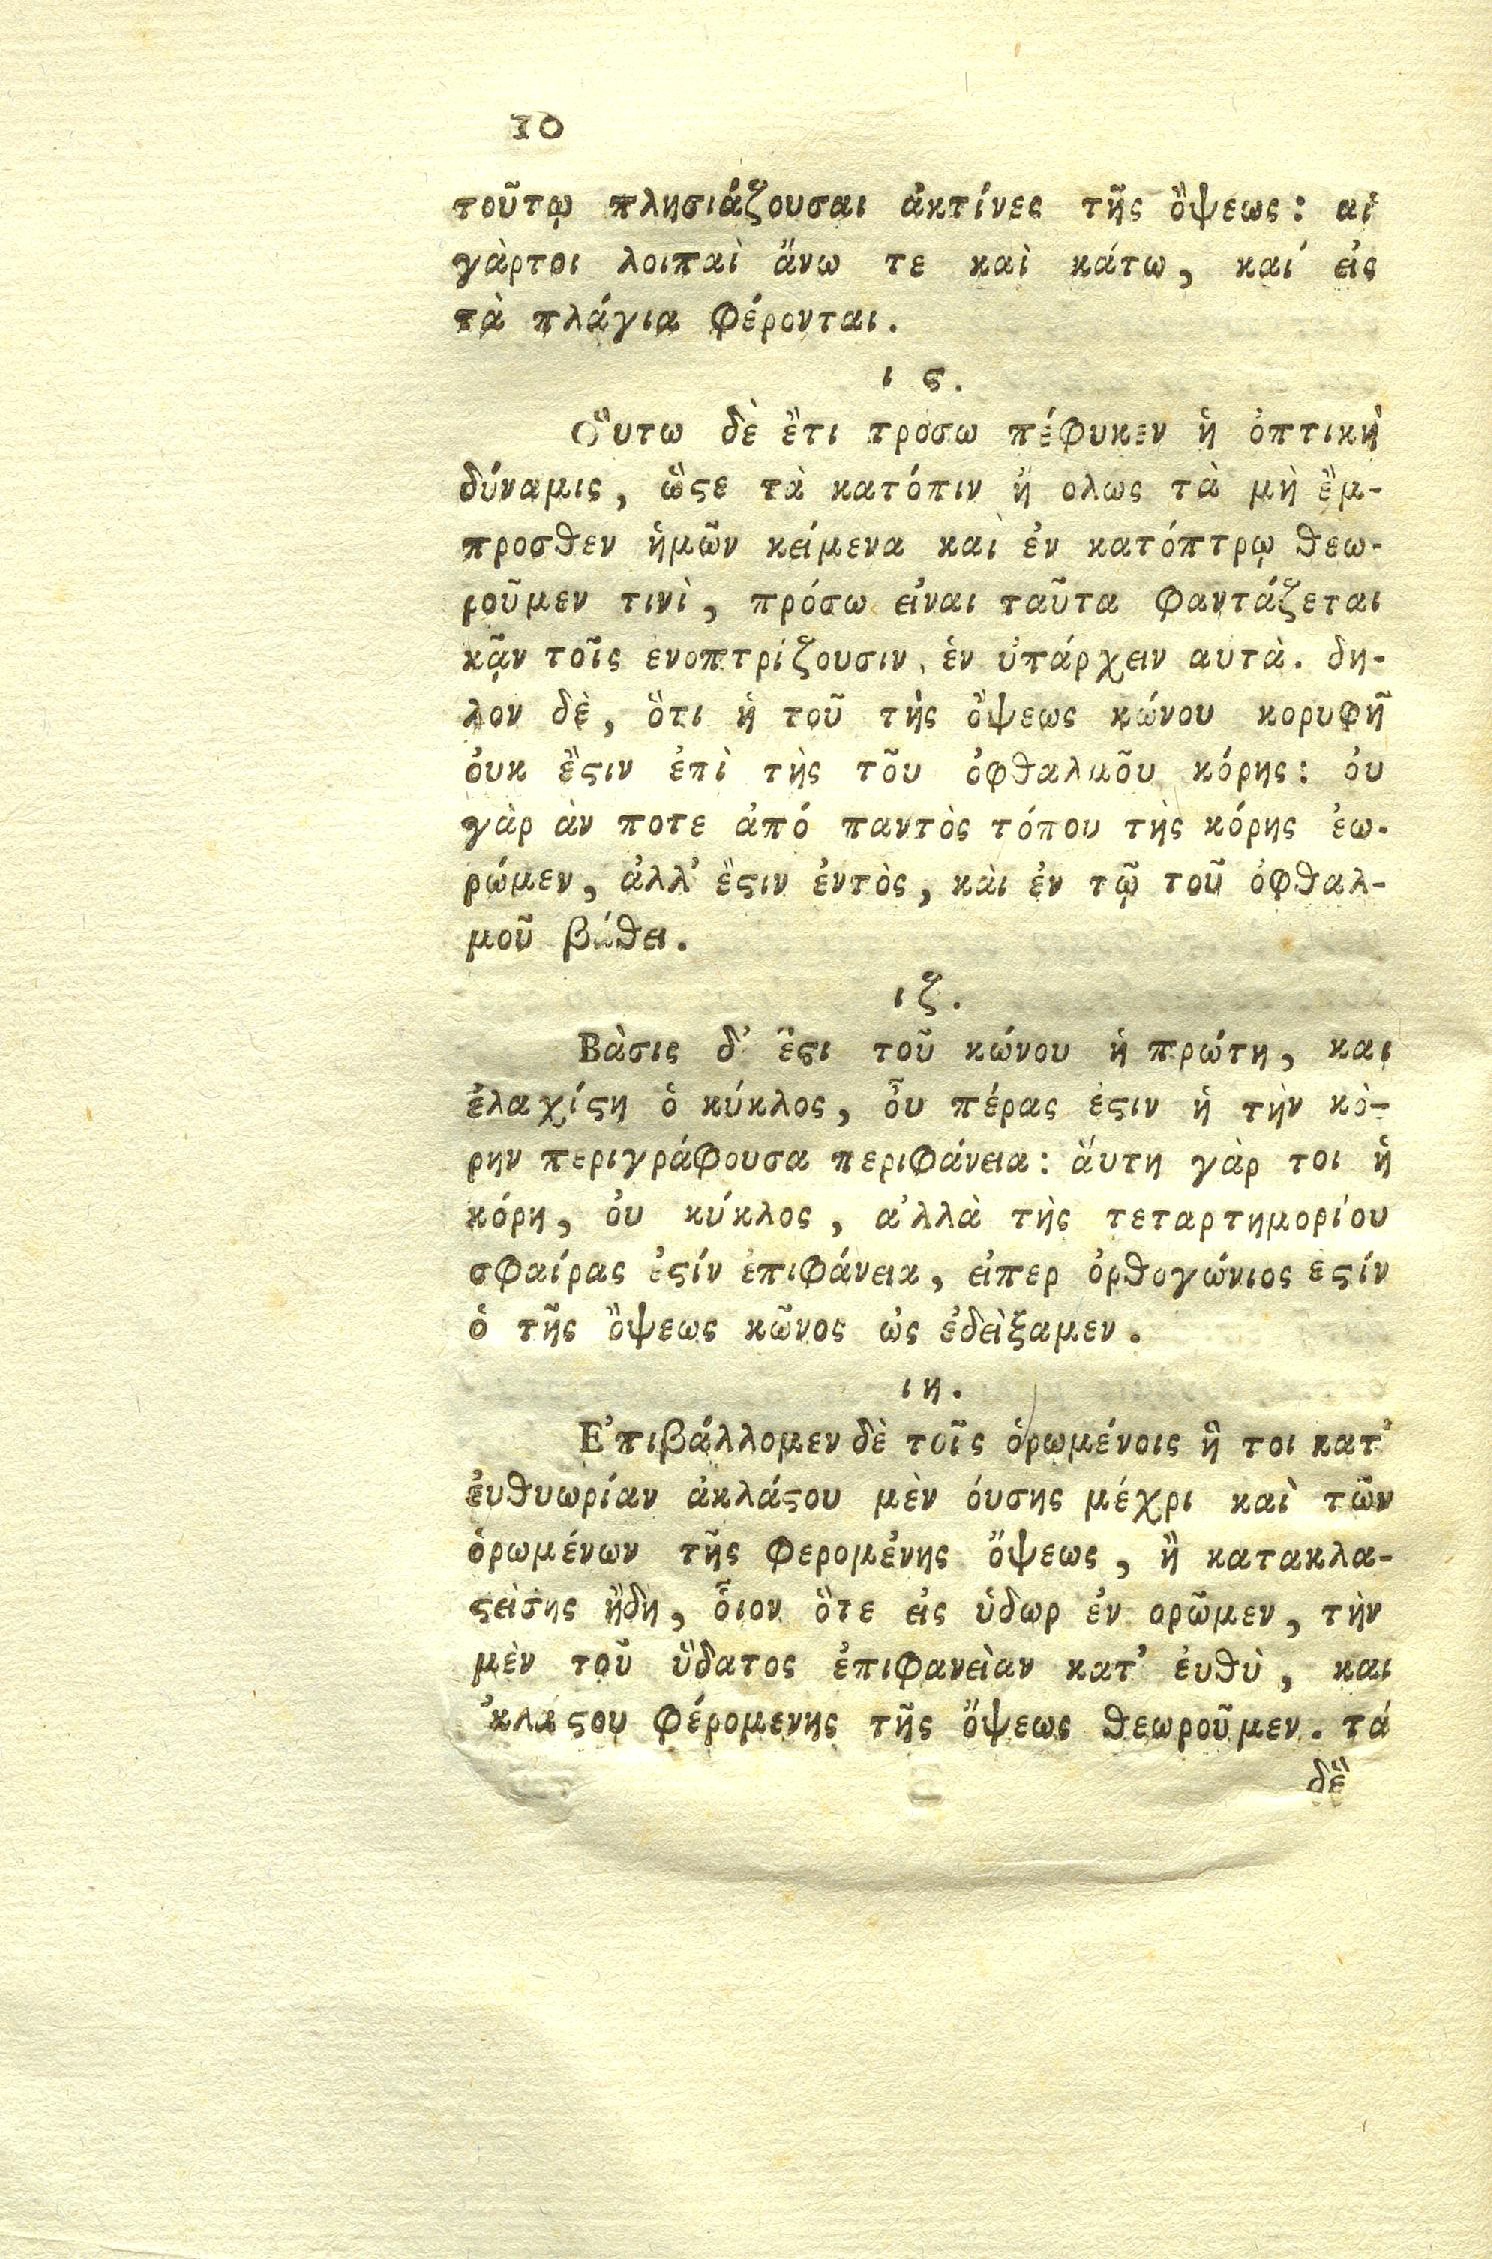 10
τοῦτῳ πλησιάζουσαι ἀκτίνες τῆς ὄψεως: αἱ
γὰρτοι λοιπαὶ ἄνω τε καὶ κάτω, καί εἰς
τὰ πλάγια φέρονται.
ι ϛ.
Οὕτω δὲ ἔτι πρόσω πέφυκεν ἡ ὀπτικὴ
δύναμις, ὥϛε τὰ κατόπιν ἤ ολως τὰ μὴ ἔμ-
προσθεν ἡμῶν κείμενα καὶ ἐν κατόπτρῳ θεω-
ροῦμεν τινὶ, πρόσω εἶναι ταῦτα φαντάζεται
κᾷν τοῖς ενοπτρίζουσιν, ἐν ὑπάρχειν αυτὰ. δη-
λον δὲ, ὅτι ἡ τοῦ τὴς ὄψεως κώνου κορυφῆ
ὀυκ ἔϛιν ἐπὶ τὴς τοῦ ὀφθαλμοῦ κόρης: ὀυ
γὰρ ἀν ποτε ἀπό παντὸς τόπου τὴς κόρης ἑω-
ρώμεν, ἀλλ' ἔϛιν ἐντὸς, κὰι ἐν τῷ τοῦ ὀφθαλ-
μοῦ βάθει.
ιζ.
Βὰσις δ' ἔϛι τοῦ κώνου ἡ πρώτη, και
ἐλαχίϛη ὁ κύκλος, οὗ πέρας ἐϛιν ἡ τὴν κὸ-
ρην περιγράφουσα περιφάνεια: ἅυτη γὰρ τοι ἡ
κόρη, ὀυ κύκλος, α'λλὰ τὴς τεταρτημορίου
σφαίρας ἐϛίν ἐπιφάνεια, εἰπερ ὀρθογώνιος εϛίν
ὁ τῆς ὄψεως κῶνος ὡς ἐδεὶξαμεν.
ιη.
Ε'πιβάλλομεν δὲ τοῖς ὁρωμένοις ἤ τοι κατ'
ἐυθυωρίαν ἀκλάϛου μὲν όυσης μέχρι καὶ τῶν
ὁρωμένων τῆς φερομἐνης ὄψεως, ἢ κατακλα-
ϛείσης ἤδη, οἷον ὅτε εἰς ὑδωρ ἐν ορῶμεν, τὴν
μὲν τοῦ ὕδατος ἐπιφανεὶαν κατ' ἐυθὺ, και
ἀκλάϛου φέρομενης τῆς ὄψεως θεωροῦμεν. τά
δἒ